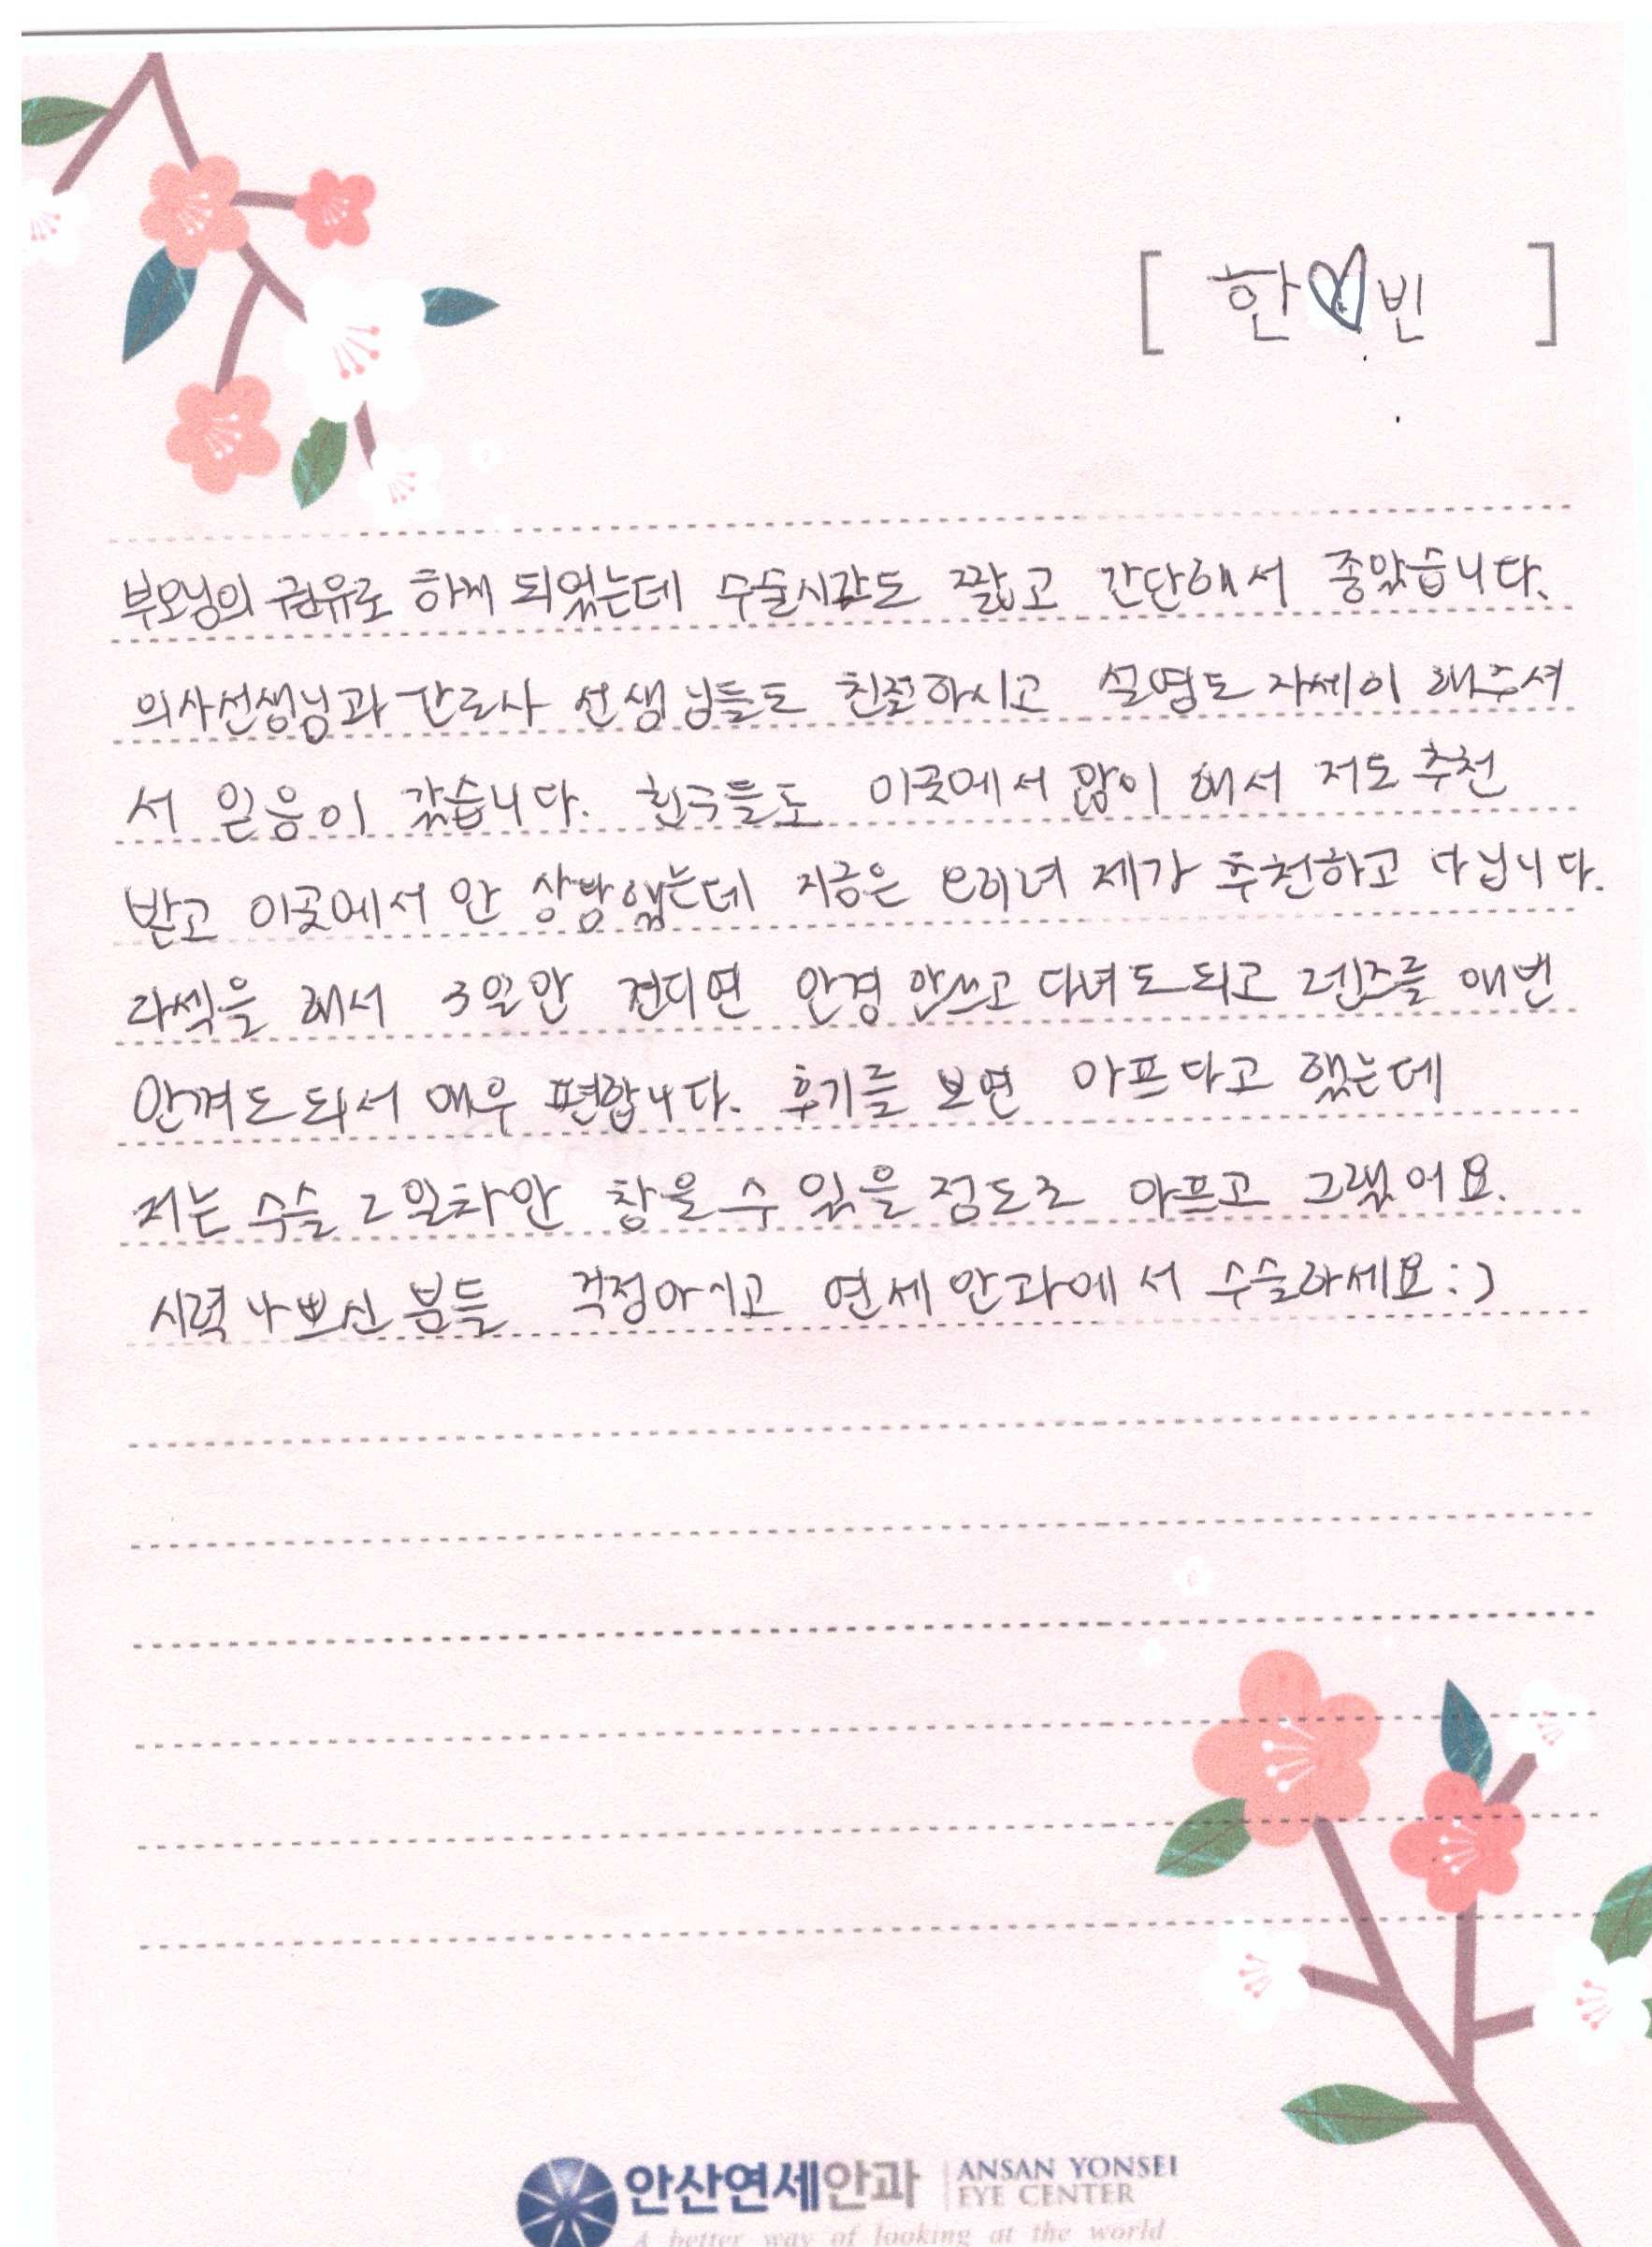 [ 한♡빈 ]
부모님의 권유로 하게 되었는데 수술시간도 짧고 간단해서 좋았습니다.
의사선생님과 간호사 선생님들도 친절하시고 설명도 자세히 해주셔
서 믿음이 갔습니다. 친구들도 이곳에서 많이 해서 저도 추천
받고 이곳에서 안 상담했는데 지금은 오히려 제가 추천하고 다닙니다.
라섹을 해서 3일만 견디면 안경 안쓰고 다녀도 되고 렌즈를 매번
안껴도 되서 매우 편합니다. 후기를 보면 아프다고 했는데
저는 수술 2일차만 참을 수 있을 정도로 아프고 그랬어요.
시력 나쁘신 분들 걱정마시고 연세안과에서 수술하세요:)
안산연세안과 ANSAN YONSEI
EYE CENTER
A better way of looking at the world